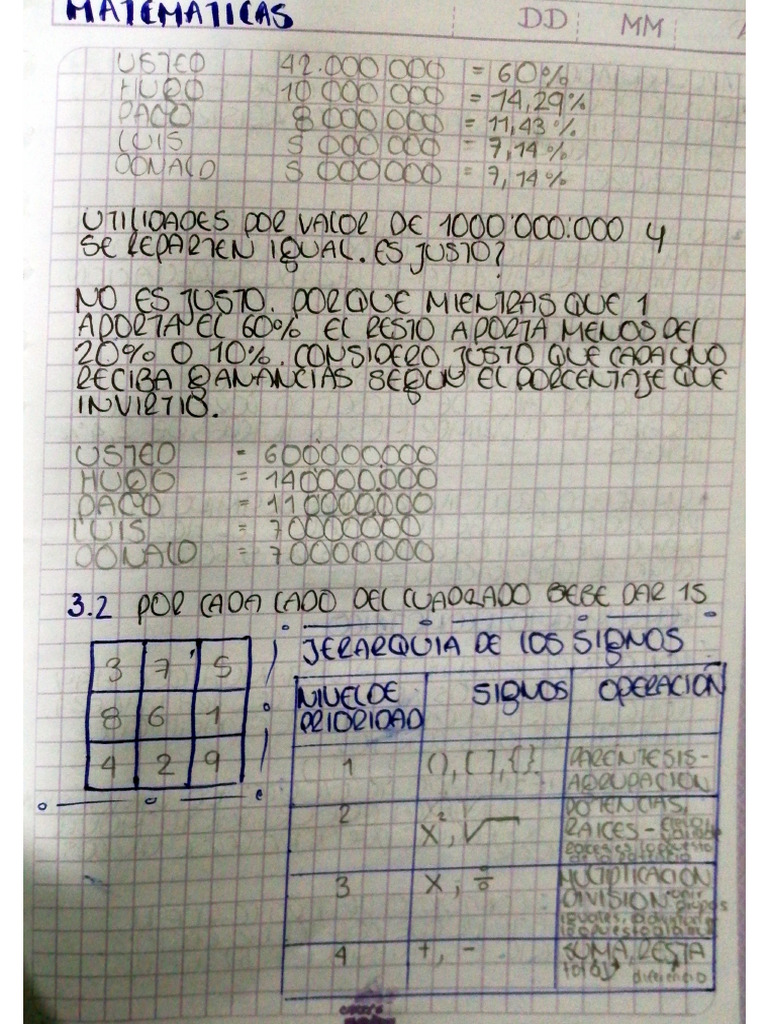 MATEMATICAS
D.D MM
USTED 42.000 000 = 60%
HUGO 10 000 000 = 14,29%
PACO 8 000 000 = 11,43 %
LUIS 5 000 000 = 7,14 %
DONALD 5 000 000 = 7,14 %
UTILIDADES POR VALOR DE 1000'000.000 Y
SE REPARTEN IGUAL. ES JUSTO?
NO ES JUSTO. PORQUE MIENTRAS QUE 1
APORTA EL 60% EL RESTO APORTA MENOS DEL
20% O 10%. CONSIDERO JUSTO QUE CADA UNO
RECIBA GANANCIAS SEGUN EL PORCENTAJE QUE
INVIRTIO.
USTED = 600'000000
HUGO = 140000000
PACO = 110000000
LUIS = 70000000
DONALD = 70000000
3.2 POR CADA LADO DEL CUADRADO DEBE DAR 15
3 7 5
8 6 1
4 2 9
JERARQUIA DE LOS SIGNOS
NIVEL DE PRIORIDAD SIGNOS OPERACION
1 (), [ ], { } PARENTESIS-
AGRUPACION
2 x², √ POTENCIAS,
RAICES -
3 X, ÷ MULTIPLICACION
DIVISION
iguales,
4 +, - SUMA, RESTA
total diferencia